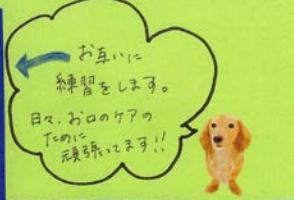 お互いに
練習をします。
日々、お口のケアの
ために
頑張ってます!!